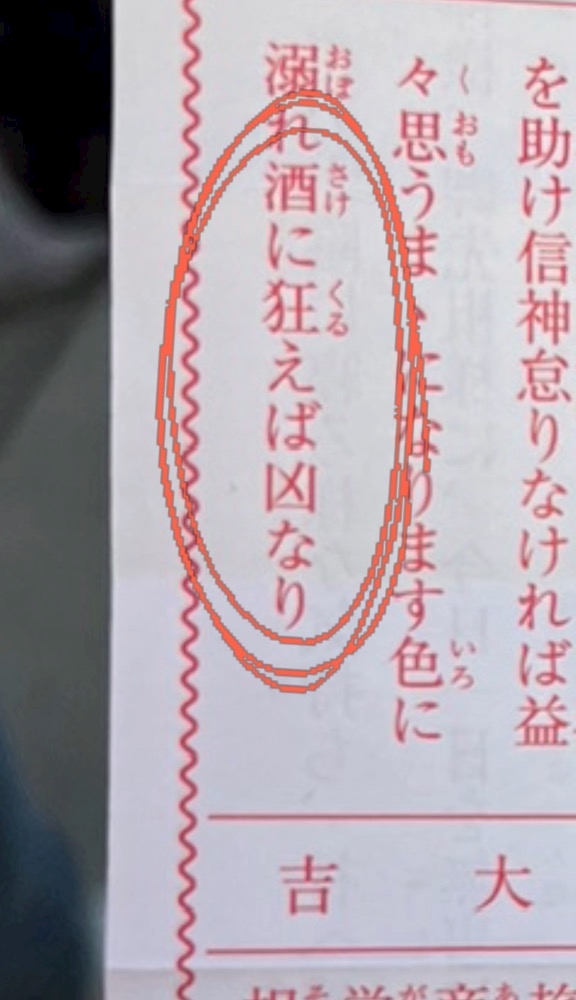 を助け信神怠りなければ益
々思うまゝになります色に
溺れ酒に狂えば凶なり
大吉